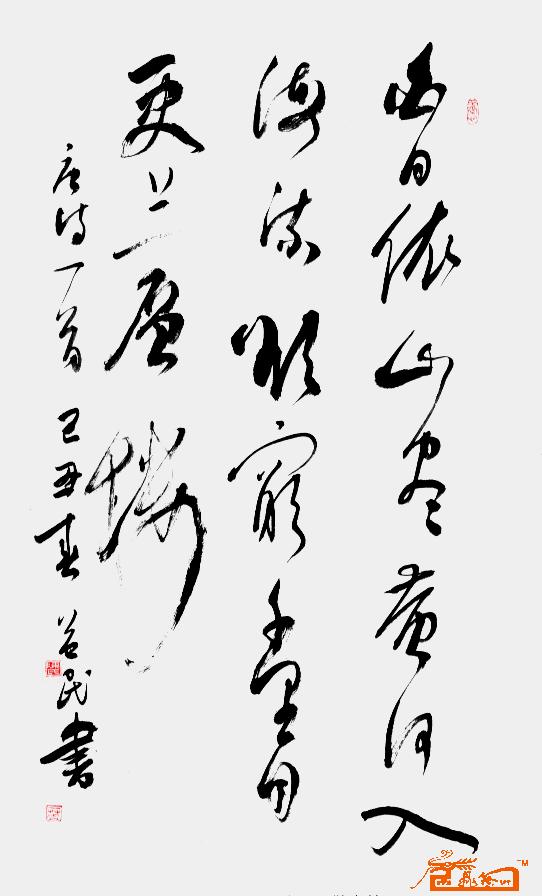 白日依山尽黄河入
海流欲窮千里目
更上一層楼
唐诗一首 己丑春 民書